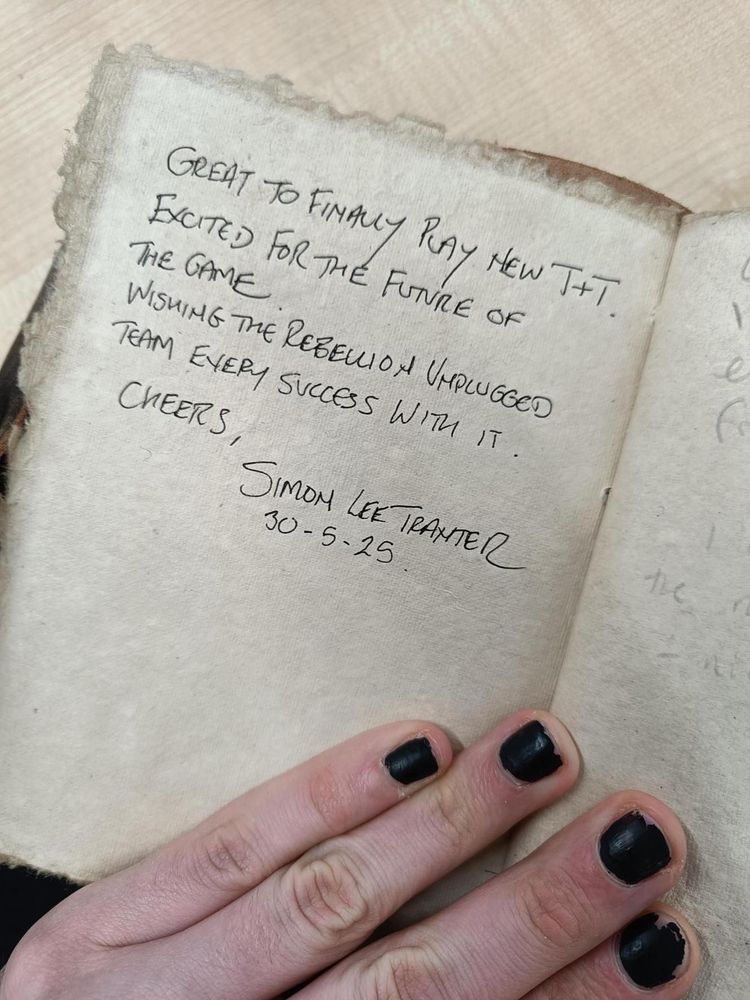 GREAT TO FINALLY PLAY NEW T+T.
EXCITED FOR THE FUTURE OF
THE GAME.
WISHING THE REBELLION UNPLUGGED
TEAM EVERY SUCCESS WITH IT.
CHEERS,
SIMON LEE TRANTER
30-5-25.
the